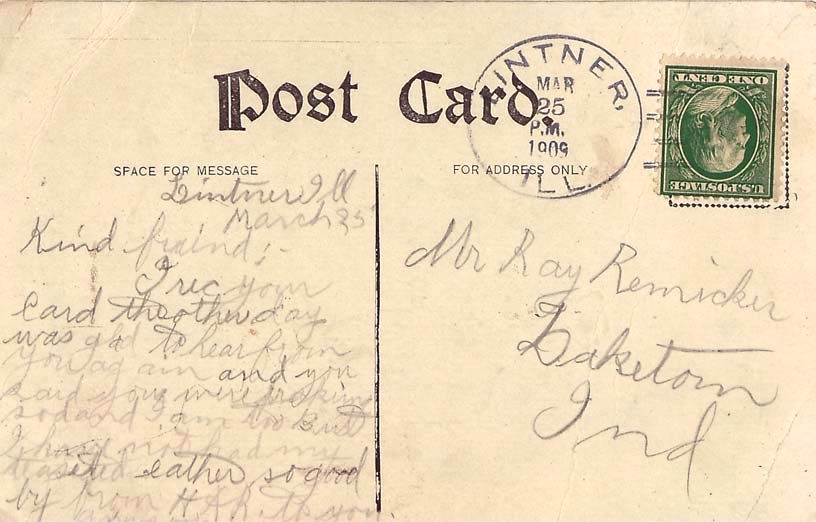 Post Card.
LINTNER,
MAR
25
P.M.
1909
ILL.
ONE CENT
U.S. POSTAGE
SPACE FOR MESSAGE
FOR ADDRESS ONLY
Lintner Ill
March 25
Kind fraind;-
I rec your
Card the other day
was gld to hear from
you again and you
said you were
so and I am too But
I have not had my
eather so good
by from H.A.R. to you
Mr Ray Remicker
Laketom
Ind